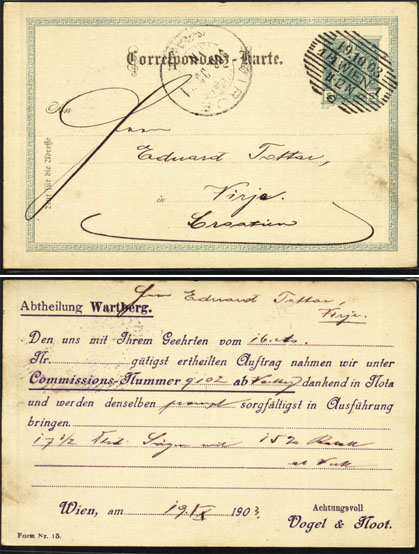 Correspondenz-Karte.
19.10.03
WIEN
An
Herrn
Eduard Tottar,
in
Virje.
Croatien
Nur für die Adresse
Herrn Eduard Tottar,
Virje.
Abtheilung Wartberg.
Den uns mit Ihrem Geehrten vom 16. ds.
Nr. gütigst ertheilten Auftrag nahmen wir unter
Commissions-Nummer 9102 ab dankend in Nota
und werden denselben prompt sorgfältigst in Ausführung
bringen.
17 1/2 15% Rabatt
ab
Wien, am 19/X 1903.
Achtungsvoll
Vogel & Noot.
Form Nr. 15.